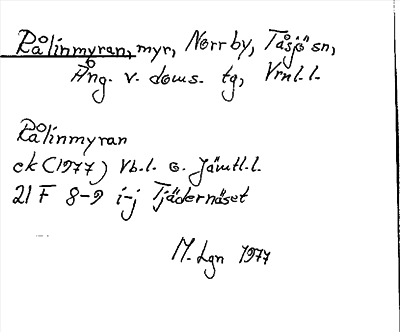 Rålinmyran, myr, Norrby, Tåsjö sn,
Ång. v. doms. tg, Vrnl.l.
Rålinmyran
ek (1977) Vb.l. o. Jämtl.l.
21 F 8-9 i-j Tjädernäset
M. Lgn 1977